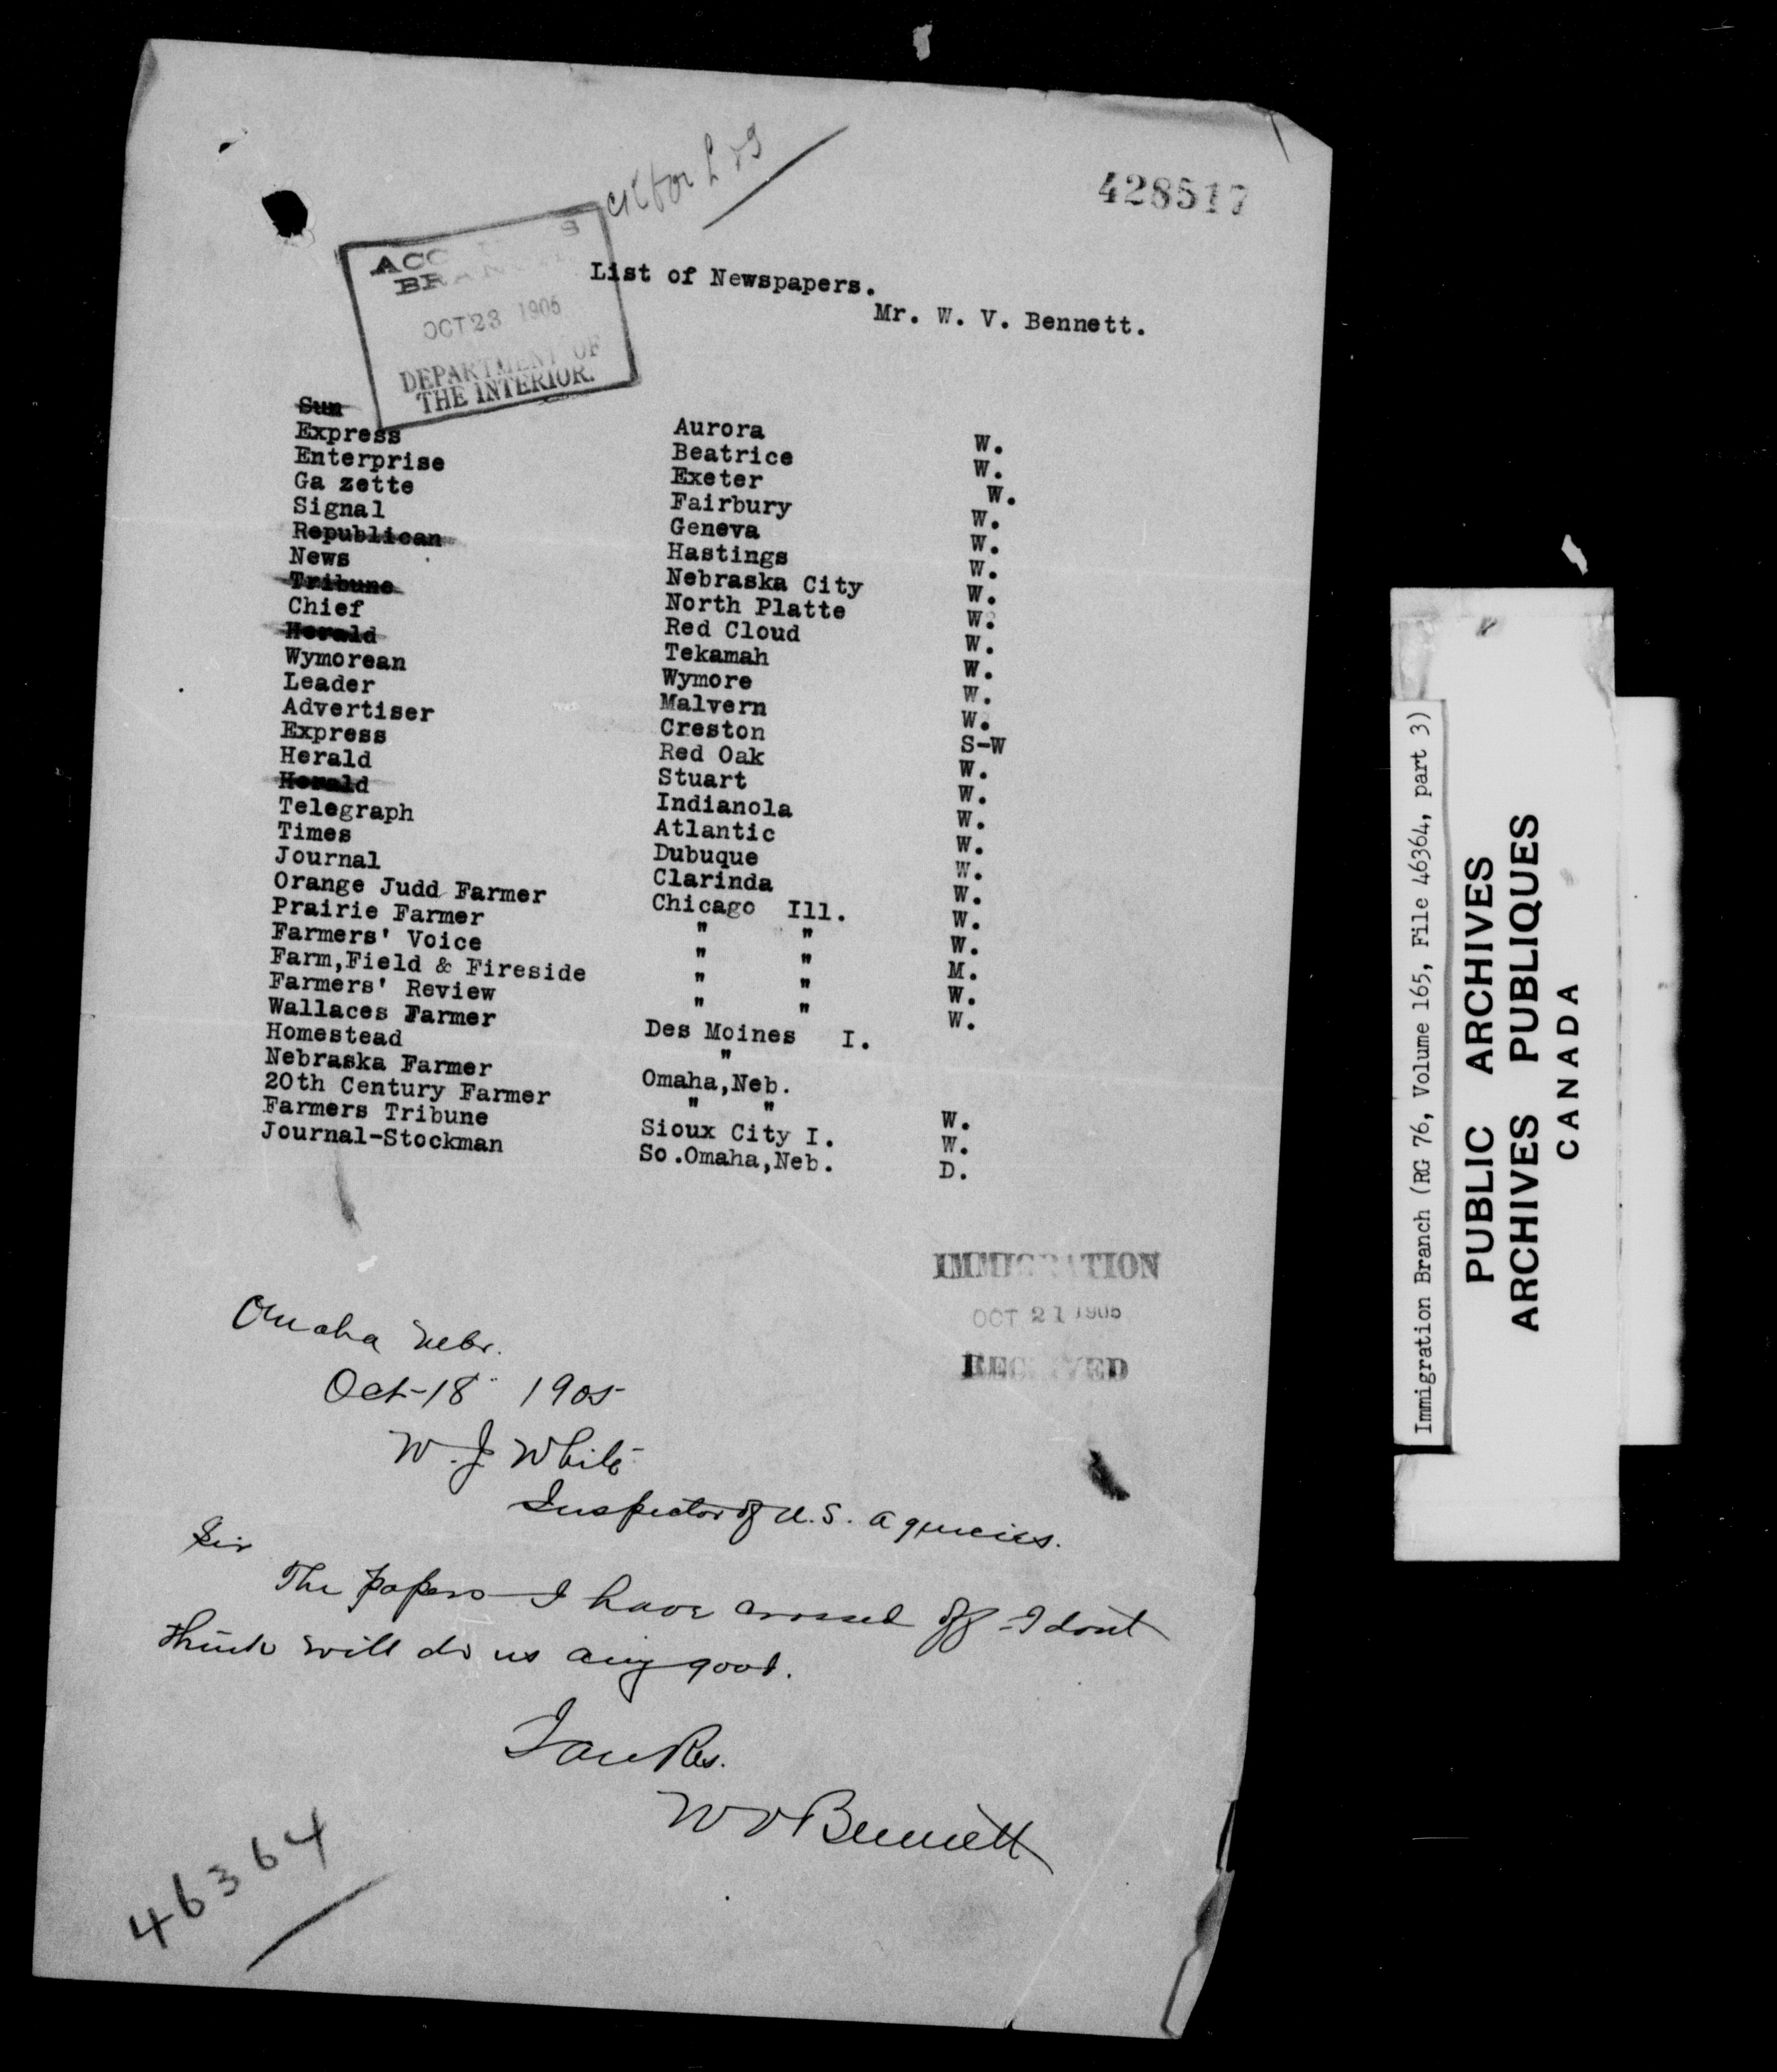 428517
ACC S
BRAN
OCT 23 1905
DEPARTMENT OF
THE INTERIOR.
List of Newspapers.
Mr. W. V. Bennett.
Sun Aurora W.
Express Beatrice W.
Enterprise Exeter W.
Ga zette Fairbury W.
Signal Geneva W.
Republican Hastings W.
News Nebraska City W.
Tribune North Platte W.
Chief Red Cloud W.
Herald Tekamah W.
Wymorean Wymore W.
Leader Malvern W.
Advertiser Creston S-W
Express Red Oak W.
Herald Stuart W.
Herald Indianola W.
Telegraph Atlantic W.
Times Dubuque W.
Journal Clarinda W.
Orange Judd Farmer Chicago Ill. W.
Prairie Farmer " " W.
Farmers' Voice " " M.
Farm,Field & Fireside " " W.
Farmers' Review " " W.
Wallaces Farmer Des Moines I.
Homestead "
Nebraska Farmer Omaha,Neb.
20th Century Farmer " " W.
Farmers Tribune Sioux City I. W.
Journal-Stockman So.Omaha,Neb. D.
IMMIGRATION
OCT 21 1905
RECEIVED
Omaha Nebr.
Oct-18" 1905
W. J. White
Inspector of U.S. Agencies.
Sir
The papers I have crossed off - I dont
think will do us any good.
W V Bennett
46364
Immigration Branch (RG 76, Volume 165, File 46364, part 3)
PUBLIC ARCHIVES
ARCHIVES PUBLIQUES
CANADA